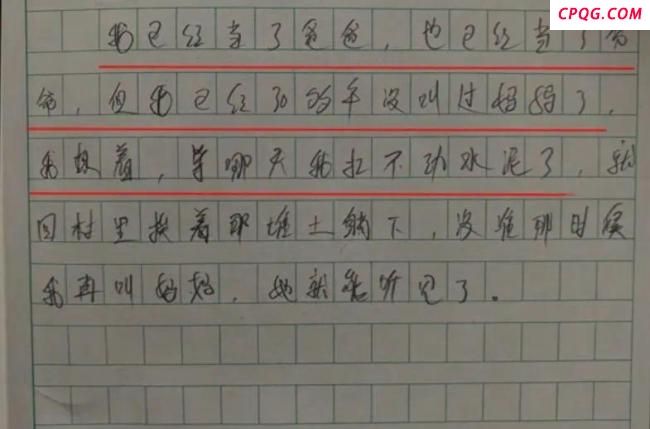 CPQG.COM
我已经当了爸爸，也已经当了爷
爷，但我已经30年没叫过妈妈了，
我想着，等哪天我扛不动水泥了，就
回村里挨着那堆土躺下，没准那时候
我再叫妈妈，她就能听见了。